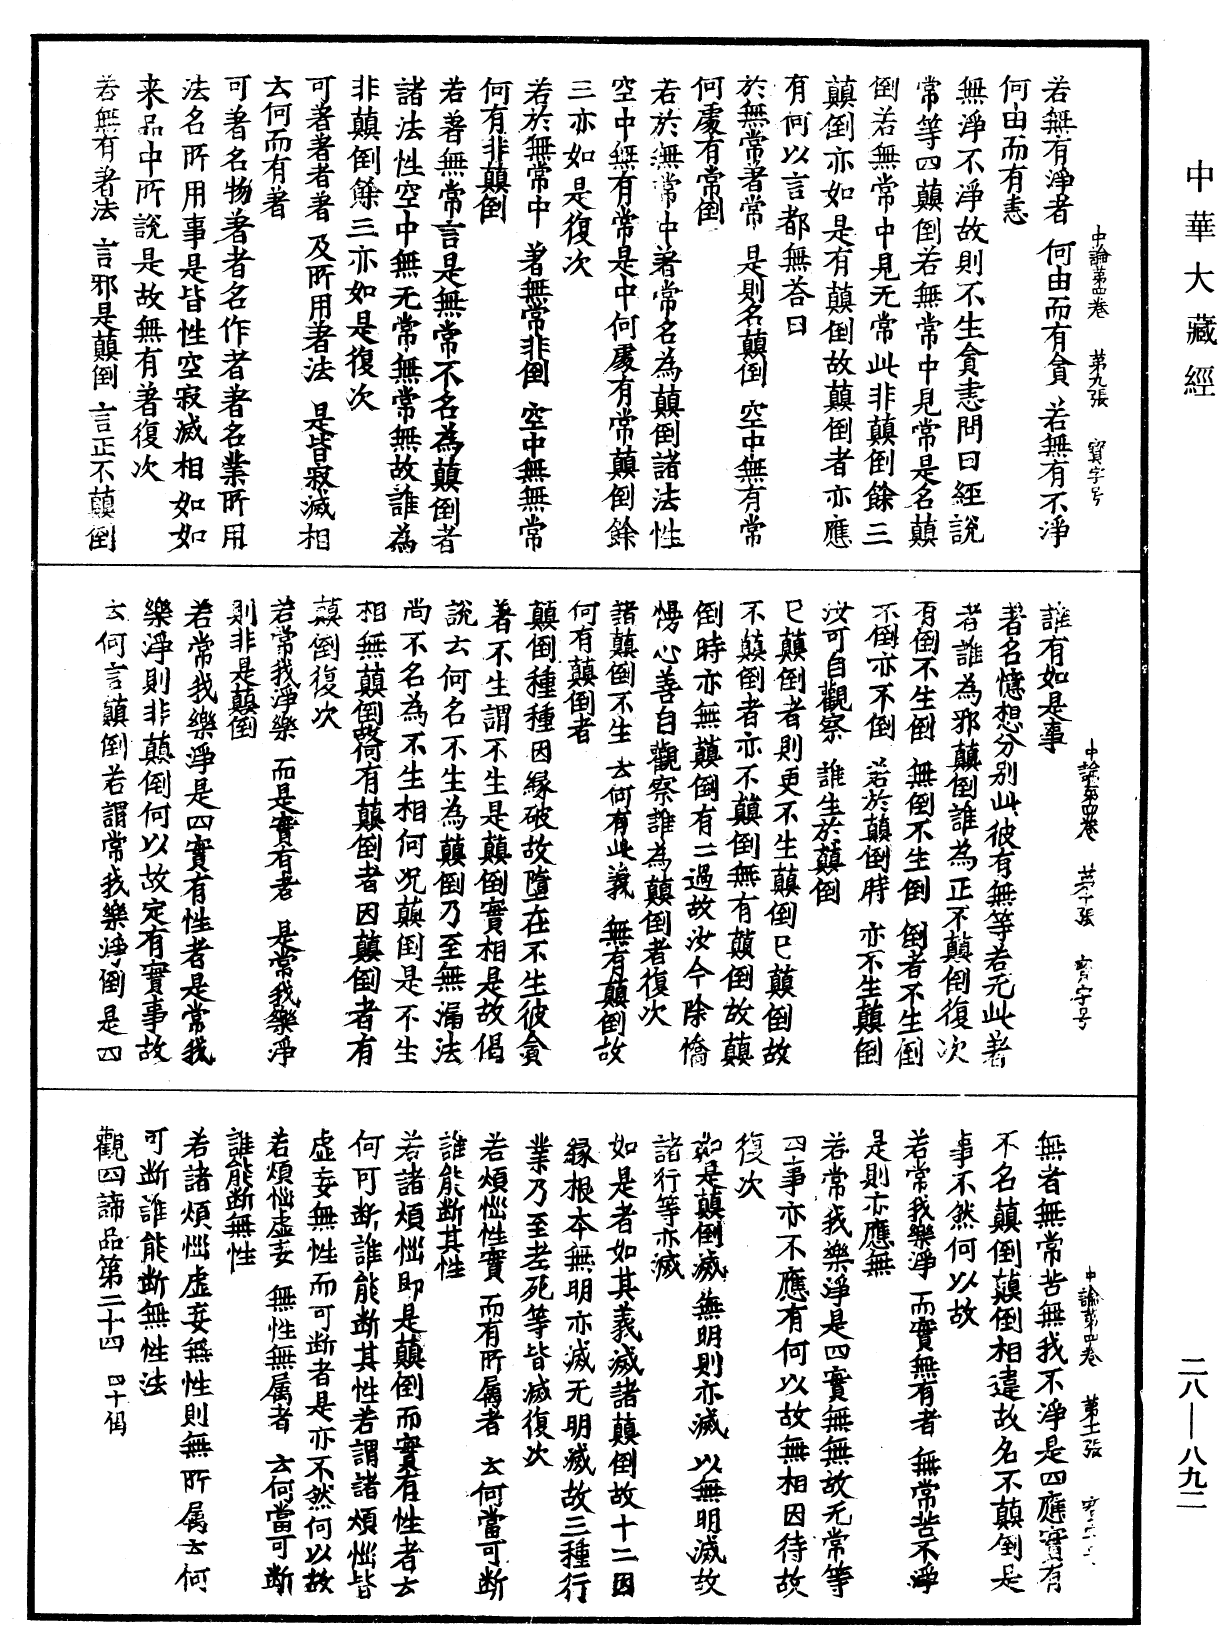 中華大藏經
中論第四卷　第九張　寶字号
若無有淨者　何由而有貪　若無有不淨
何由而有恚
無淨不淨故則不生貪恚問曰經說
常等四顛倒若無常中見常是名顛
倒若無常中見无常此非顛倒餘三
顛倒亦如是有顛倒故顛倒者亦應
有何以言都無荅曰
於無常著常　是則名顛倒　空中無有常
何處有常倒
若於無常中著常名為顛倒諸法性
空中無有常是中何處有常顛倒餘
三亦如是復次
若於無常中　著無常非倒　空中無無常
何有非顛倒
若著無常言是無常不名為顛倒者
諸法性空中無无常無常無故誰為
非顛倒餘三亦如是復次
可著著者著　及所用著法　是皆寂滅相
云何而有著
可著名物著者名作者著名業所用
法名所用事是皆性空寂滅相如如
来品中所說是故無有著復次
若無有著法　言邪是顛倒　言正不顛倒
中論第四卷　第十張　寶字号
誰有如是事
著名憶想分別此彼有無等若无此著
者誰為邪顛倒誰為正不顛倒復次
有倒不生倒　無倒不生倒　倒者不生倒
不倒亦不倒　若於顛倒時　亦不生顛倒
汝可自觀察　誰生於顛倒
已顛倒者則更不生顛倒已顛倒故
不顛倒者亦不顛倒無有顛倒故顛
倒時亦無顛倒有二過故汝今除憍
慢心善自觀察誰為顛倒者復次
諸顛倒不生　云何有此義　無有顛倒故
何有顛倒者
顛倒種種因緣破故墮在不生彼貪
著不生謂不生是顛倒實相是故偈
說云何名不生為顛倒乃至無漏法
尚不名為不生相何況顛倒是不生
相無顛倒故何有顛倒者因顛倒者有
顛倒復次
若常我淨樂　而是實有者　是常我樂淨
則非是顛倒
若常我樂淨是四實有性者是常我
樂淨則非顛倒何以故定有實事故
云何言顛倒若謂常我樂淨倒是四
中論第四卷　第十一張
無者無常苦無我不淨是四應實有
不名顛倒顛倒相違故名不顛倒是
事不然何以故
若常我樂淨　而實無有者　無常苦不淨
是則亦應無
若常我樂淨是四實無無故无常等
四事亦不應有何以故無相因待故
復次
如是顛倒滅　無明則亦滅　以無明滅故
諸行等亦滅
如是者如其義滅諸顛倒故十二因
緣根本無明亦滅无明滅故三種行
業乃至老死等皆滅復次
若煩惱性實　而有所属者　云何當可断
誰能断其性
若諸煩惱即是顛倒而實有性者云
何可断誰能断其性若謂諸煩惱皆
虚妄無性而可断者是亦不然何以故
若煩惱虚妄　無性無属者　云何當可断
誰能断無性
若諸煩惱虚妄無性則無所属云何
可断誰能断無性法
觀四諦品第二十四　四十偈
二八—八九二